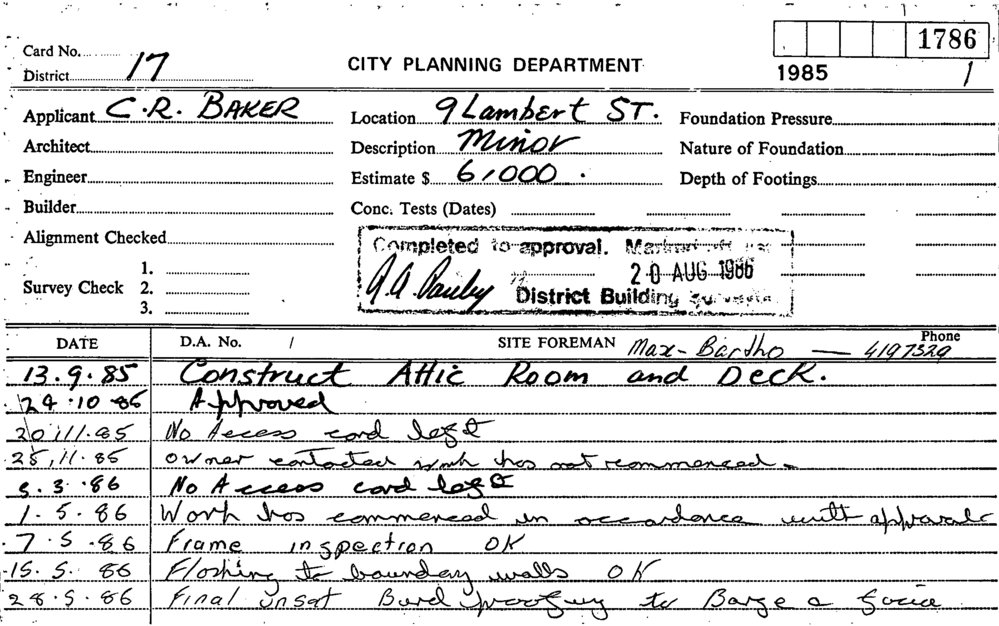 1786
Card No.
CITY PLANNING DEPARTMENT
District 17
1985 1
Applicant C.R. BAKER Location 9 Lambert ST. Foundation Pressure
Architect Description Minor Nature of Foundation
Engineer Estimate $ 6,000. Depth of Footings
Builder Conc. Tests (Dates)
Alignment Checked
Completed to approval.
Survey Check 1.
2.
3.
20 AUG 1986
District Building
DATE D.A. No. / SITE FOREMAN Max - Bartho — Phone 4197329
13.9.85 Construct Attic Room and Deck.
24.10.86 Approved
20/11.85 No Access card left
25.11.85 owner contacted work has not commenced.
5.3.86 No Access card left
1.5.86 Work has commenced in accordance with approvals
7.5.86 Frame inspection OK
15.5.86 Flashing to boundary walls OK
28.5.86 Final unsat Bird proofing to Barge &